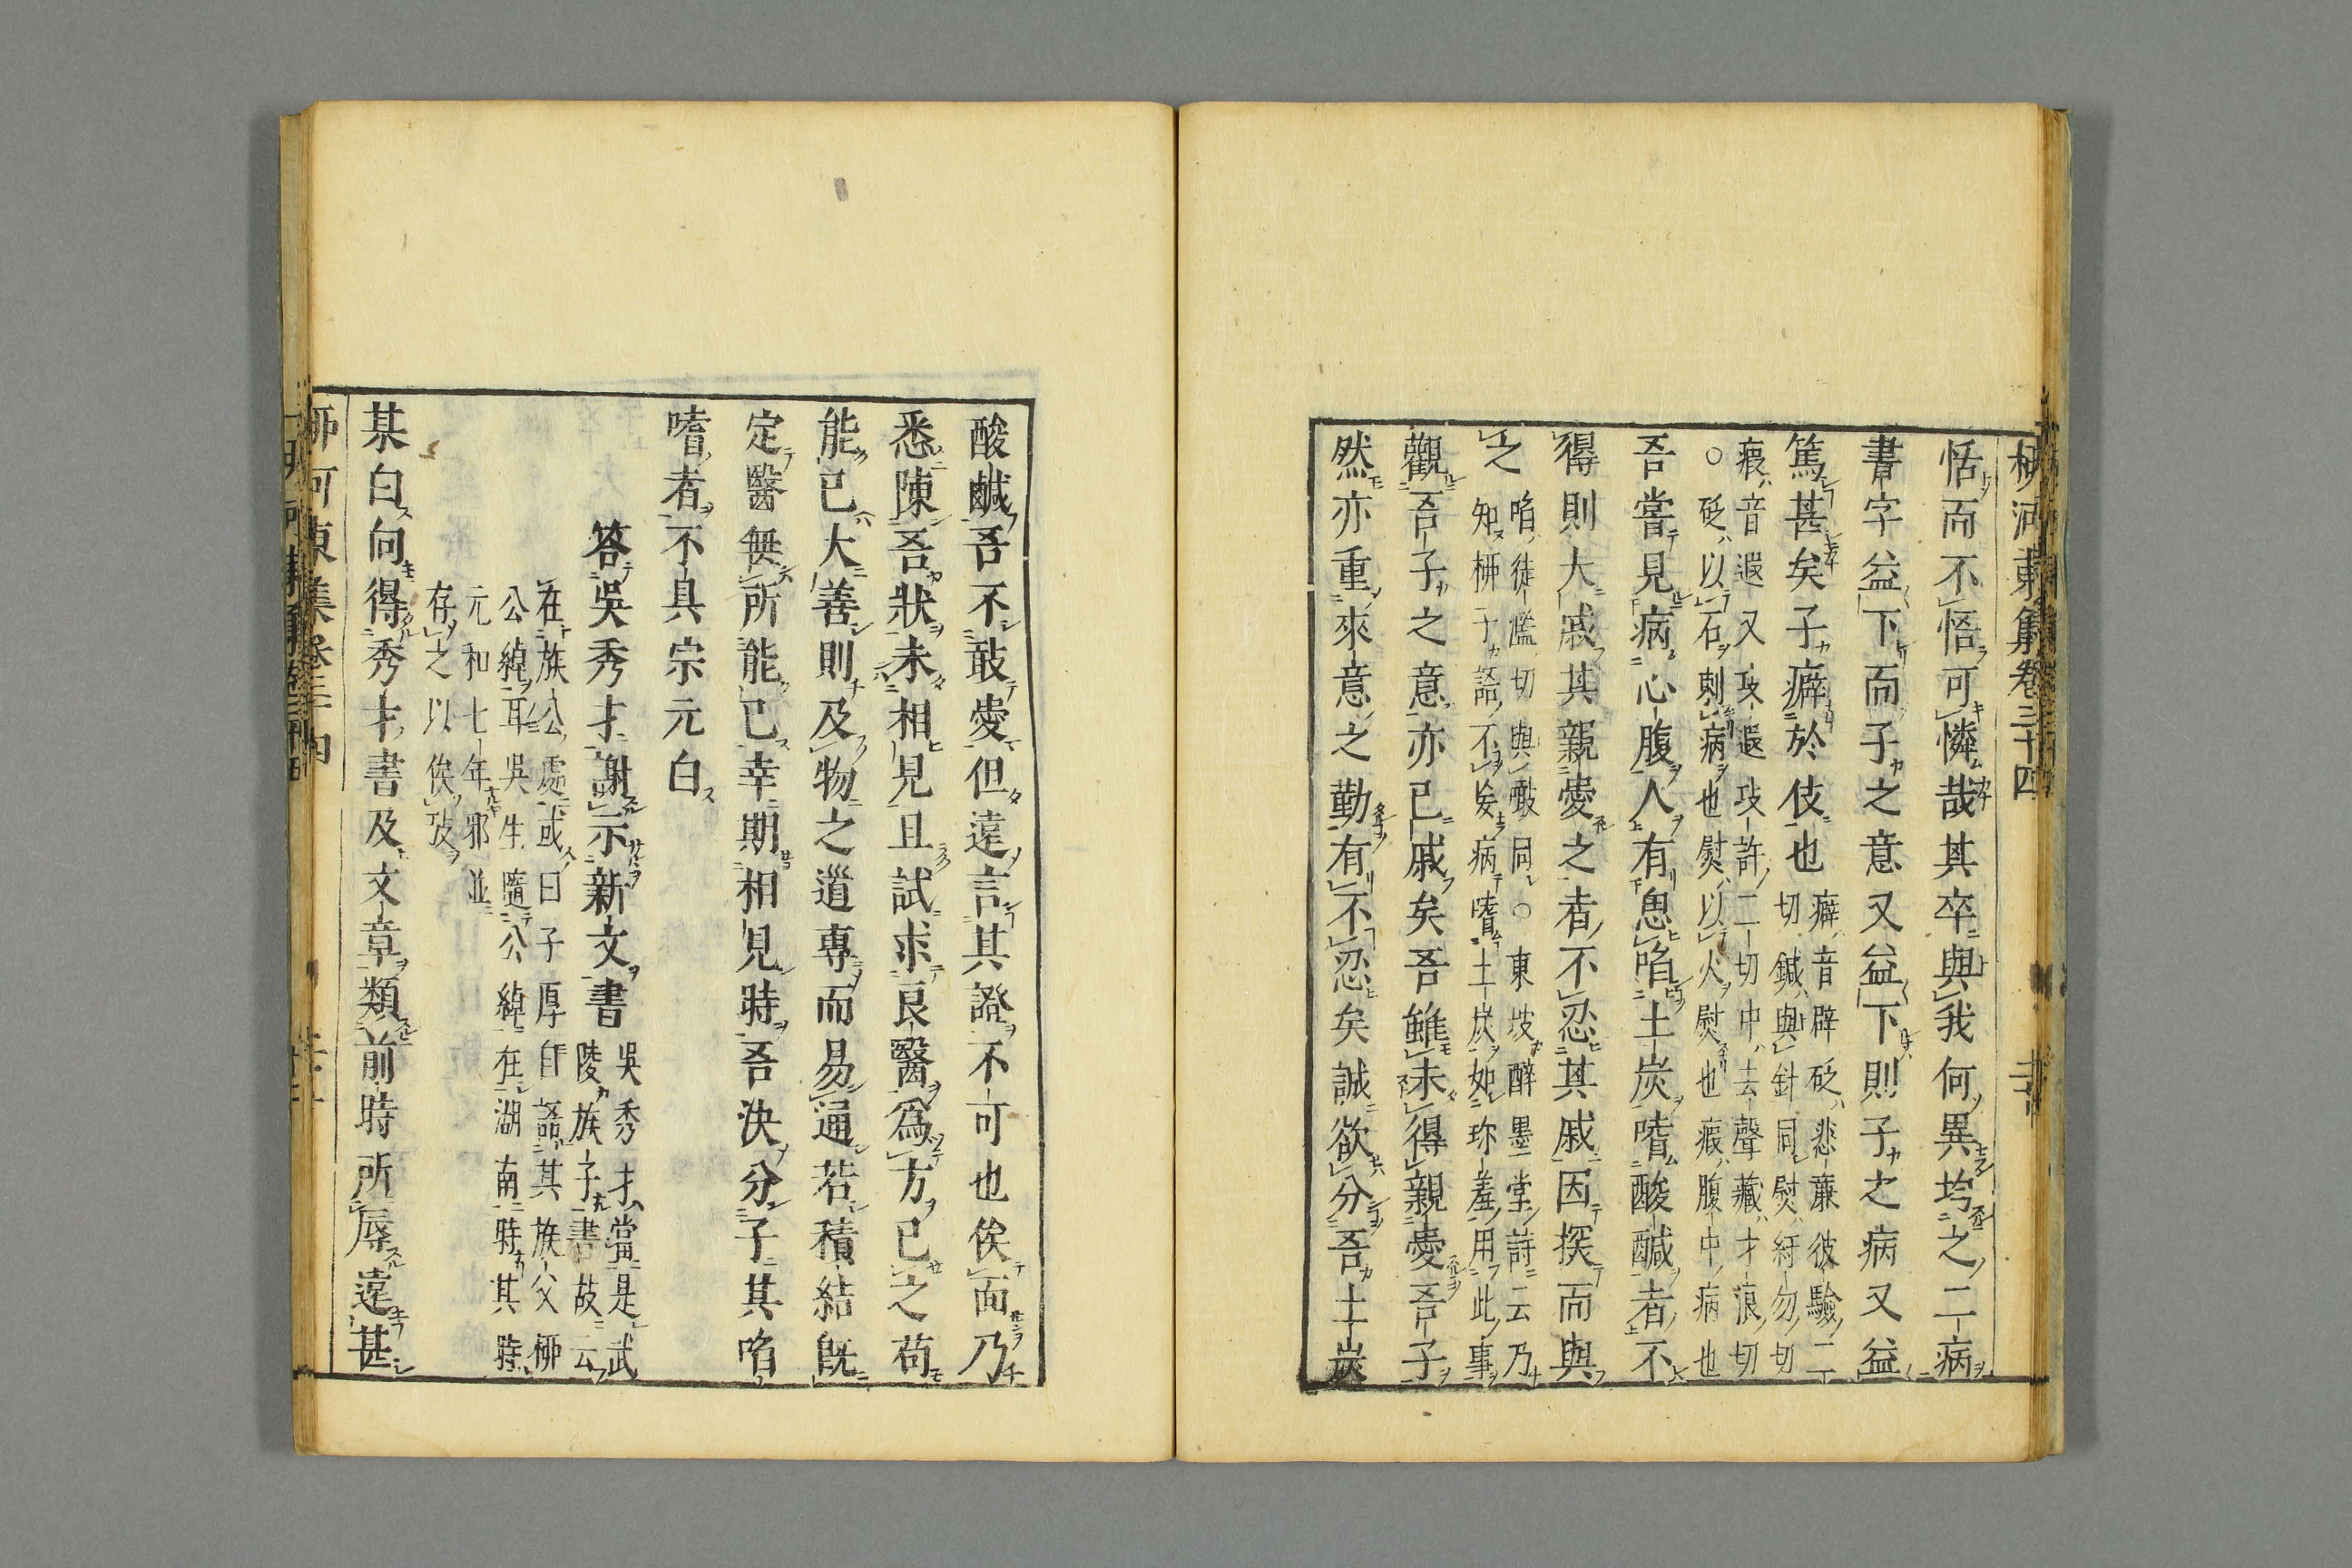 柳河東集卷三十四
恬而不悟可憐哉其卒與我何異均之二病
書字益下而子之意又益下則子之病又益
篤甚矣子癖於伎也
癖音辟砭悲廉彼驗二
切鍼與針同熨紆勿切
瘕音遐又攻遐攻許二切中去聲藏才浪切
○砭以石刺病也熨以火熨也瘕腹中病也
吾嘗見病心腹人有思啗土炭嗜酸醎者不
得則大戚其親愛之者不忍其戚因探而與
之
啗徒濫切與㗖同○東坡醉墨堂詩云乃
知柳子語不妄病嗜土炭如珍羞用此事
觀吾子之意亦已戚矣吾雖未得親愛吾子
然亦重來意之勤有不忍矣誠欲分吾土炭
酸鹹吾不敢愛但遠言其證不可也俟面乃
悉陳吾狀未相見且試求良醫爲方已之苟
能已大善則及物之道專而易通若積結既
定醫無所能已幸期相見時吾決分子其啗
嗜者不具宗元白
答吳秀才謝示新文書
吳秀才當是武
陵族子書故云
在族公處或曰子厚自謂其族父柳
公綽耳吳生隨公綽在湖南時其時
元和七年邪並
存之以俟攷
某白向得秀才書及文章類前時所辱遠甚
柳河東集卷三十四